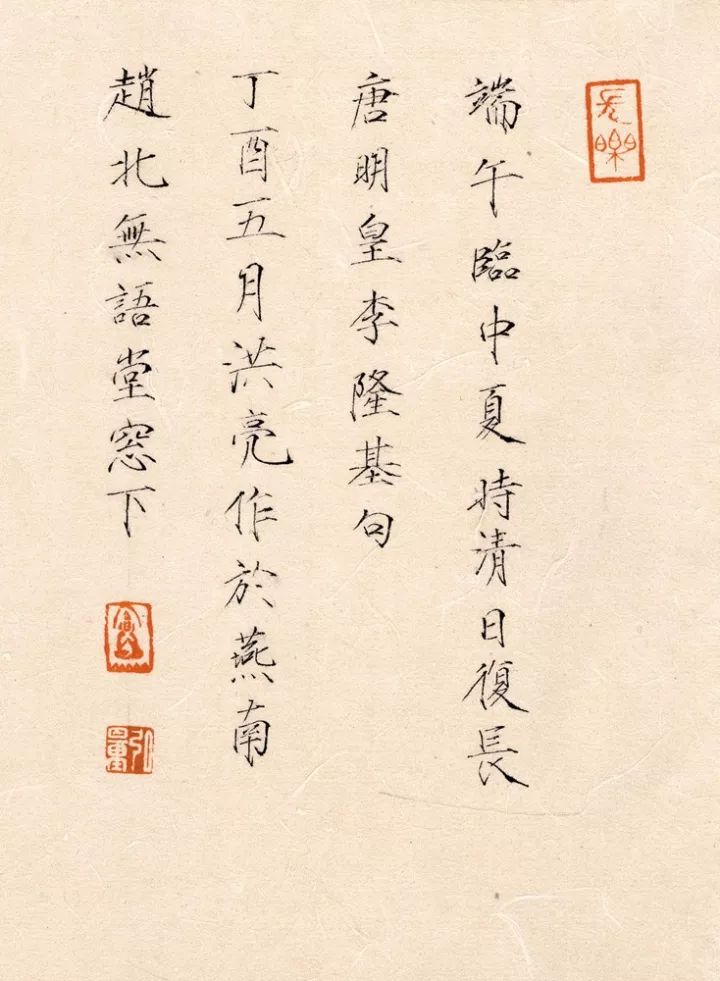 端午臨中夏時清日復長
唐明皇李隆基句
丁酉五月洪亮作於燕南
趙北無語堂窓下